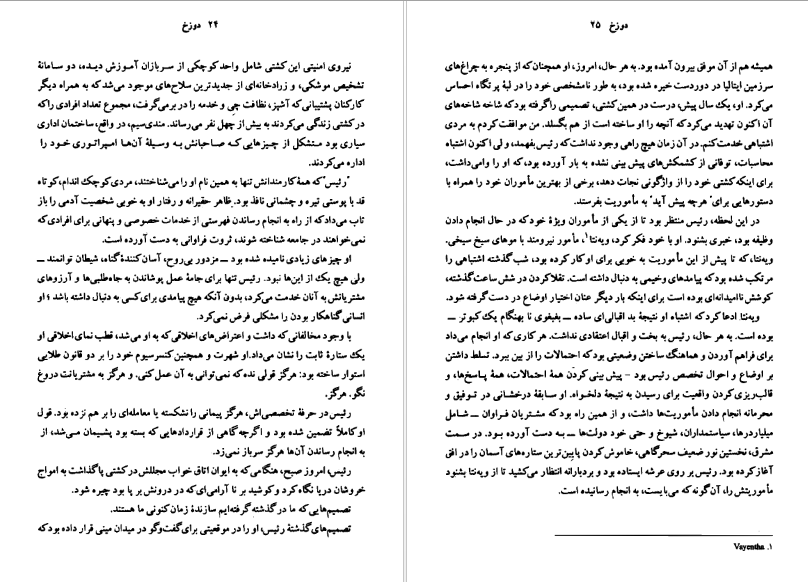 ۲۴ دوزخ
نیروی امنیتی این کشتی شامل واحد کوچکی از سربازان آموزش دیده، دو سامانهٔ
تشخیص موشکی، و زرادخانه‌ای از جدیدترین سلاح‌های موجود می‌شد که به همراه دیگر
کارکنان پشتیبانی که آشپز، نظافت چی و خدمه را در بر می‌گرفت، مجموع تعداد افرادی را که
در کشتی زندگی می‌کردند به بیش از چهل نفر می‌رساند. مندی‌سیم، در واقع، ساختمان اداری
سیاری بود متشکل از چیزهایی که صاحبانش به وسیلهٔ آن‌ها امپراتوری خود را
اداره می‌کردند.
"رئیس" که همهٔ کارمندانش تنها به همین نام او را می‌شناختند، مردی کوچک اندام، کوتاه
قد با پوستی تیره و چشمانی نافذ بود. ظاهر حقیرانه و رفتار او به خوبی شخصیت آدمی را باز
تاب می‌داد که از راه به انجام رساندن فهرستی از خدمات خصوصی و پنهانی برای افرادی که
نمی‌خواهند در جامعه شناخته شوند، ثروت فراوانی به دست آورده است.
او چیزهای زیادی نامیده شده بود ــ مزدور بی‌روح، آسان کنندهٔ گناه، شیطان توانمند ــ
ولی هیچ یک از این‌ها نبود. رئیس تنها برای جامهٔ عمل پوشاندن به جاه‌طلبی‌ها و آرزوهای
مشتریانش به آنان خدمت می‌کرد، بدون آنکه هیچ پیامدی برای کسی به دنبال داشته باشد ؛ او
انسانی گناهکار بودن را مشکلی فرض نمی‌کرد.
با وجود مخالفانی که داشت و اعتراض‌های اخلاقی که به او می‌شد، قطب نمای اخلاقی او
یک ستارهٔ ثابت را نشان می‌داد. او شهرت و همچنین کنسرسیوم خود را بر دو قانون طلایی
استوار ساخته بود: هرگز قولی نده که نمی‌توانی به آن عمل کنی. و هرگز به مشتریانت دروغ
نگو. هرگز.
رئیس در حرفهٔ تخصصی‌اش، هرگز پیمانی را نشکسته یا معامله‌ای را بر هم نزده بود. قول
او کاملاً تضمین شده بود و اگرچه گاهی از قراردادهایی که بسته بود پشیمان می‌شد، از
به انجام رساندن آن‌ها هرگز سرباز نمی‌زد.
رئیس، امروز صبح، هنگامی که به ایوان اتاق خواب مجللش در کشتی پا گذاشت به امواج
خروشان دریا نگاه کرد و کوشید بر نا آرامی‌ای که در درونش بر پا بود چیره شود.
تصمیم‌هایی که ما در گذشته گرفته‌ایم سازندهٔ زمان کنونی ما هستند.
تصمیم‌های گذشتهٔ رئیس، او را در موقعیتی برای گفت‌وگو در میدان مینی قرار داده بود که
دوزخ ۲۵
همیشه هم از آن موفق بیرون آمده بود. به هر حال، امروز، او همچنان که از پنجره به چراغ‌های
سرزمین ایتالیا در دوردست خیره شده بود، به طور نامشخصی خود را در لبهٔ پرتگاه احساس
می‌کرد. او، یک سال پیش، درست در همین کشتی، تصمیمی را گرفته بود که شاخه شاخه‌های
آن اکنون تهدید می‌کرد که آنچه را او ساخته است از هم بگسلد. من موافقت کردم به مردی
اشتباهی خدمت کنم. در آن زمان هیچ راهی وجود نداشت که رئیس بفهمد، و لی اکنون اشتباه
محاسبات، توفانی از کشمکش‌های پیش بینی نشده به بار آورده بود، که او را وامی‌داشت،
برای اینکه کشتی خود را از واژگونی نجات دهد، برخی از بهترین مأموران خود را همراه با
دستورهایی برای "هرچه پیش آید" به مأموریت بفرستد.
در این لحظه، رئیس منتظر بود تا از یکی از مأموران ویژهٔ خود که در حال انجام دادن
وظیفه بود، خبری بشنود. او با خود فکر کرد، وینتا۱، مأمور نیرومند با موهای سیخ سیخی.
وینتا، که تا پیش از این مأموریت به خوبی برای او کار کرده بود، شب گذشته اشتباهی را
مرتکب شده بود که پیامدهای وخیمی به دنبال داشته است. تقلا کردن در شش ساعت گذشته،
کوشش ناامیدانه‌ای بوده است برای اینکه بار دیگر عنان اختیار اوضاع در دست گرفته شود.
وینتا ادعا کرد که اشتباه او نتیجهٔ بد اقبالی‌ای ساده ــ بغبغوی نا بهنگام یک کبوتر ــ
بوده است. به هر حال، رئیس به بخت و اقبال اعتقادی نداشت. هر کاری که او انجام می‌داد
برای فراهم آوردن و هماهنگ ساختن وضعیتی بود که احتمالات را از بین ببرد. تسلط داشتن
بر اوضاع و احوال تخصص رئیس بود - پیش بینی کردن همهٔ احتمالات، همهٔ پاسخ‌ها، و
قالب‌ریزی کردن واقعیت برای رسیدن به نتیجهٔ دلخواه. او سابقهٔ درخشانی در توفیق و
محرمانه انجام دادن مأموریت‌ها داشت، و از همین راه بود که مشتریان فراوان ــ شامل
میلیاردرها، سیاستمداران، شیوخ و حتی خود دولت‌ها ــ به دست آورده بود. در سمت
مشرق، نخستین نور ضعیف سحرگاهی، خاموش کردن پایین‌ترین ستاره‌های آسمان را در افق
آغاز کرده بود. رئیس بر روی عرشه ایستاده بود و بردبارانه انتظار می‌کشید تا از وینتا بشنود
مأموریتش را، آن گونه که می‌بایست، به انجام رسانیده است.
۱. Vayentha